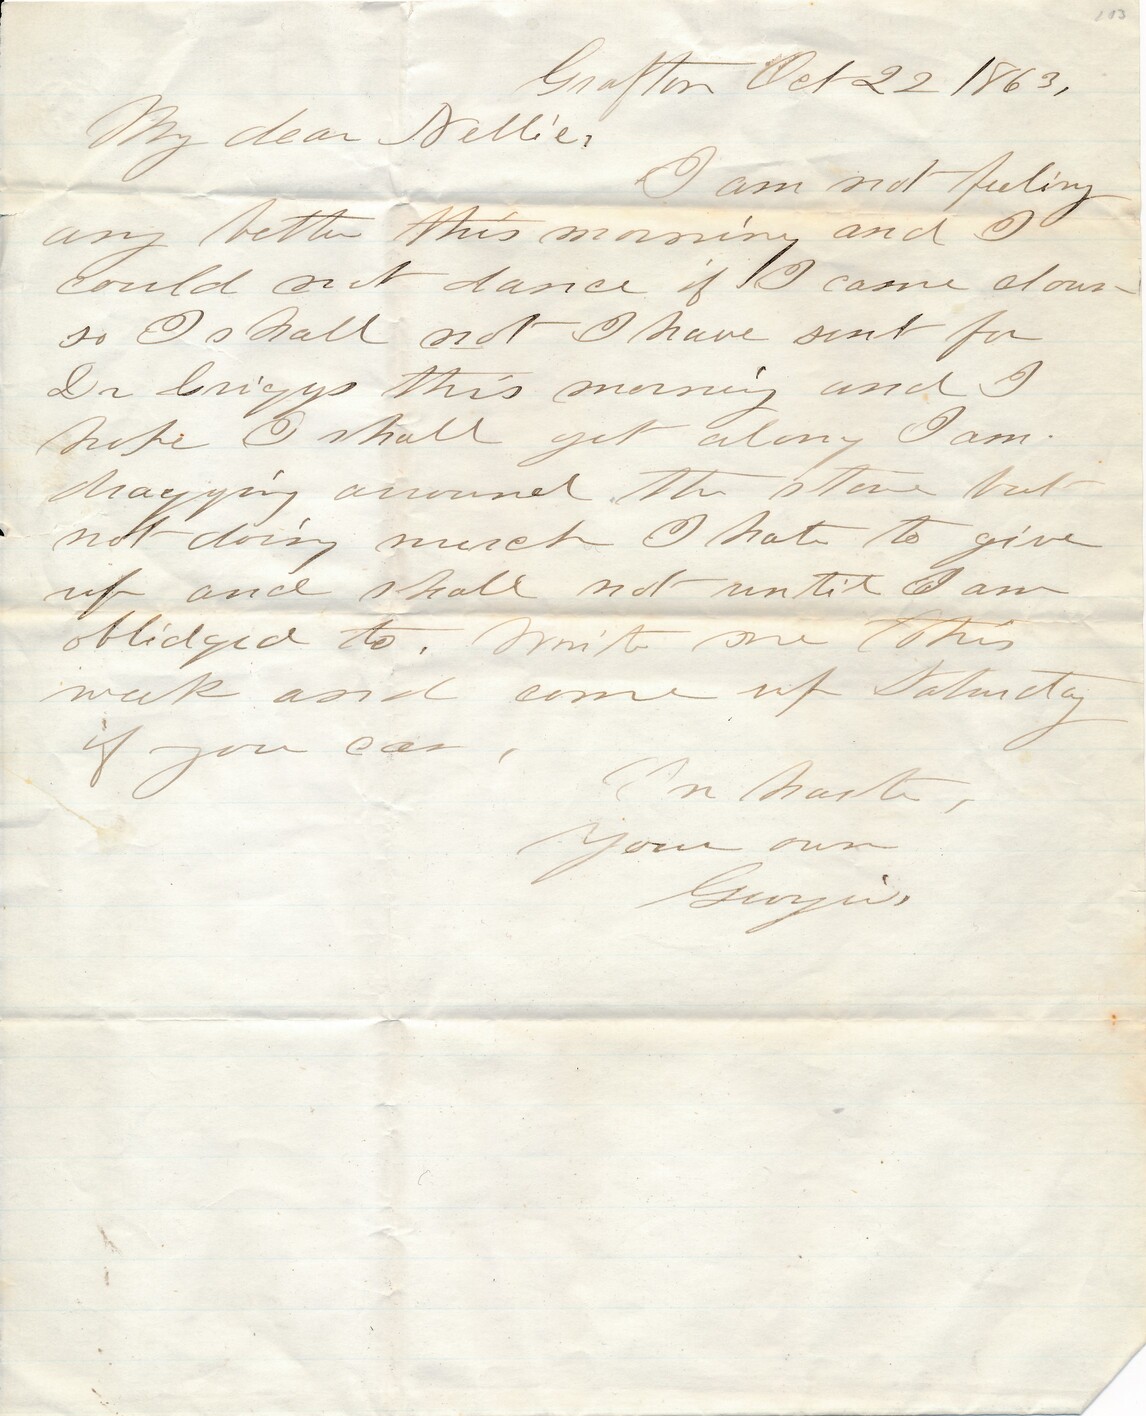 113
Grafton Oct 22 1863,
My dear Nellie,
I am not feeling
any better this morning and I
could not dance if I came down
so I shall not I have sent for
Dr Griggs this morning and I
hope I shall get along I am
dragging arround the store but
not doing much I hate to give
up and shall not until I am
oblidged to. Write me this
week and come up Saturday
if you can,
In haste,
Your own
Georgie,